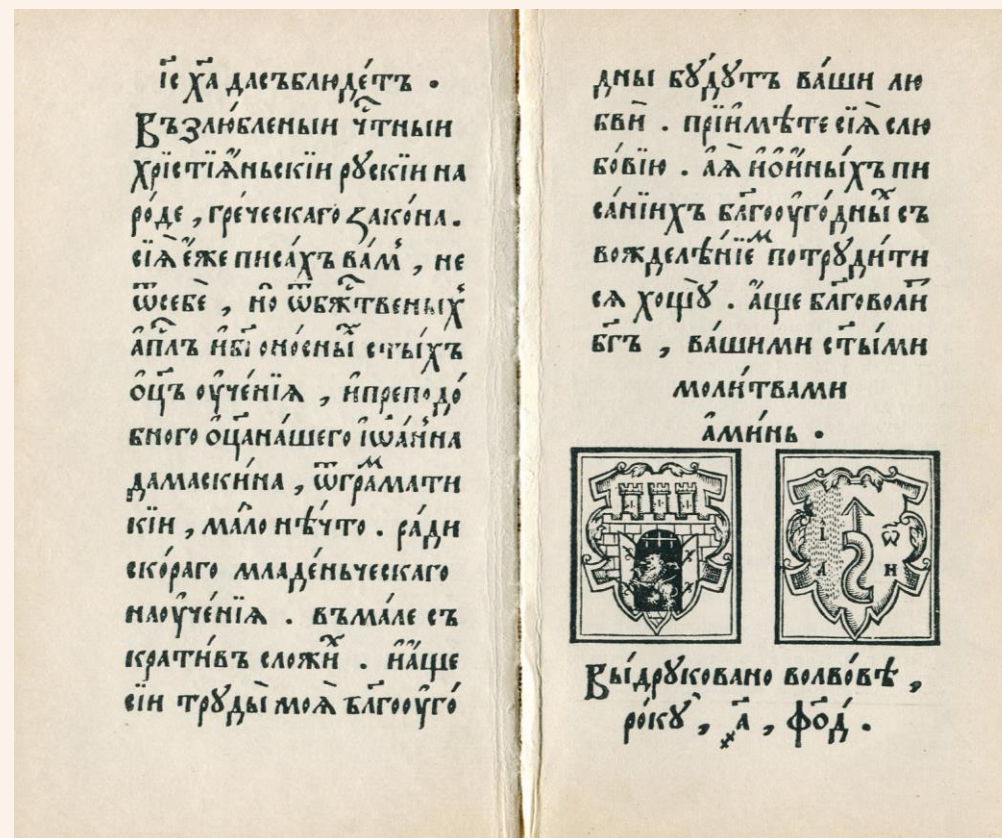 і҃с х҃а дасъблюде́тъ .
Възлю́бленыи чⷭ҇тныи
хрїстїа́ньскїи рꙋскїи на
ро́де , гре́ческаго зако́на .
сїѧ̀ е́же писа́хъ ва́мъ , не
ѿсебѐ , но̀ ѿбжⷭ҇твеныхъ
а҆пⷭ҇лъ и҆бг҃оно́сныхъ с҃ты́хъ
о҆ц҃ъ оу҆че́нїѧ , и҆преподо́
бного о҆ц҃ана́шего і҆ѡа́нна
дамаски́на , ѿгра́мати
кїи , ма́ло нѣ́что . ра́ди
ско́раго младе́ньческаго
наоу҆че́нїѧ . въма́ле съ
крати́въ сложи́хъ . и҆а҆́ще
сїи трꙋды̀ моѧ̀ бл҃гооу҆го́
дны бꙋ́дꙋтъ ва́ши лю
бвѝ . прїи҆мѣ́те сїѧ̀ слю
бо́вїю . а҆ѧ҆̀ и҆ои҆ны́хъ пи
са́нїихъ бл҃гооу҆го́дныхъ съ
вожделѣ́нїемъ потрꙋди́ти
сѧ хощꙋ̀ . а҆́ще бл҃говоли́тъ
бг҃ъ , ва́шими с҃ты́ми
моли́твами
а҆ми́нь .
І ѡ҃
А Н
Вы́дрꙋковано волво́вѣ ,
ро́кꙋ , ҂а҃ , фо҃д .